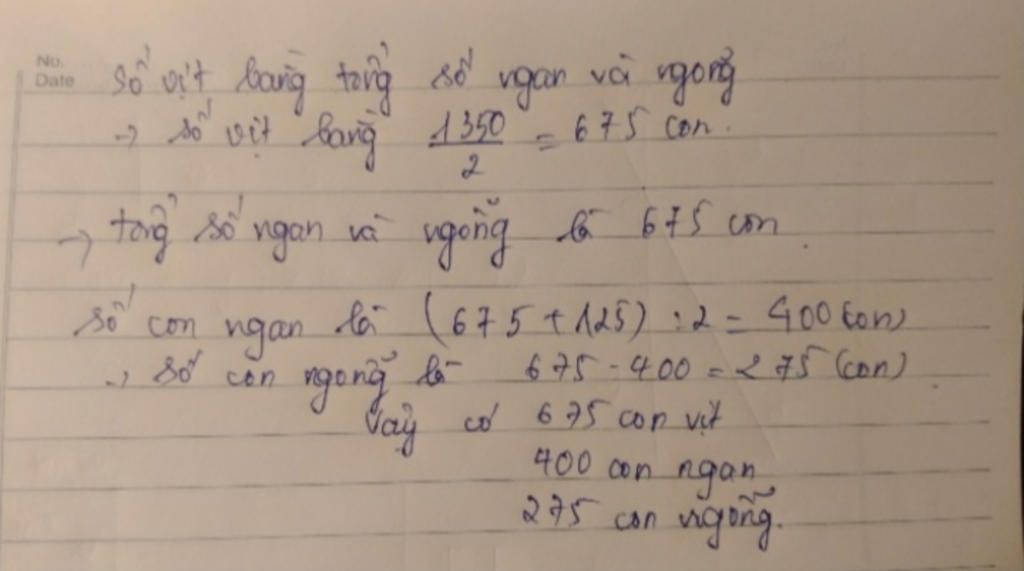 No.
Date
Số vịt bằng tổng số ngan và ngỗng
→ số vịt bằng 1350/2 = 675 con.
→ tổng số ngan và ngỗng là 675 con.
Số con ngan là (675 + 125) : 2 = 400 (con)
→ số con ngỗng là 675 - 400 = 275 (con)
Vậy có 675 con vịt
400 con ngan
275 con ngỗng.